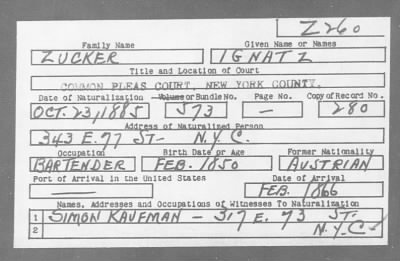 Z260
Family Name Given Name or Names
ZUCKER IGNATZ
Title and Location of Court
COMMON PLEAS COURT, NEW YORK COUNTY.
Date of Naturalization Volume or Bundle No. Page No. Copy of Record No.
OCT. 23, 1885 573 — 280
Address of Naturalized Person
343 E. 77 ST- N.Y.C.
Occupation Birth Date or Age Former Nationality
BARTENDER FEB. 1850 AUSTRIAN
Port of Arrival in the United States Date of Arrival
— FEB. 1866
Names, Addresses and Occupations of Witnesses To Naturalization
1 SIMON KAUFMAN - 317 E. 73 ST.
2 N.Y.C.